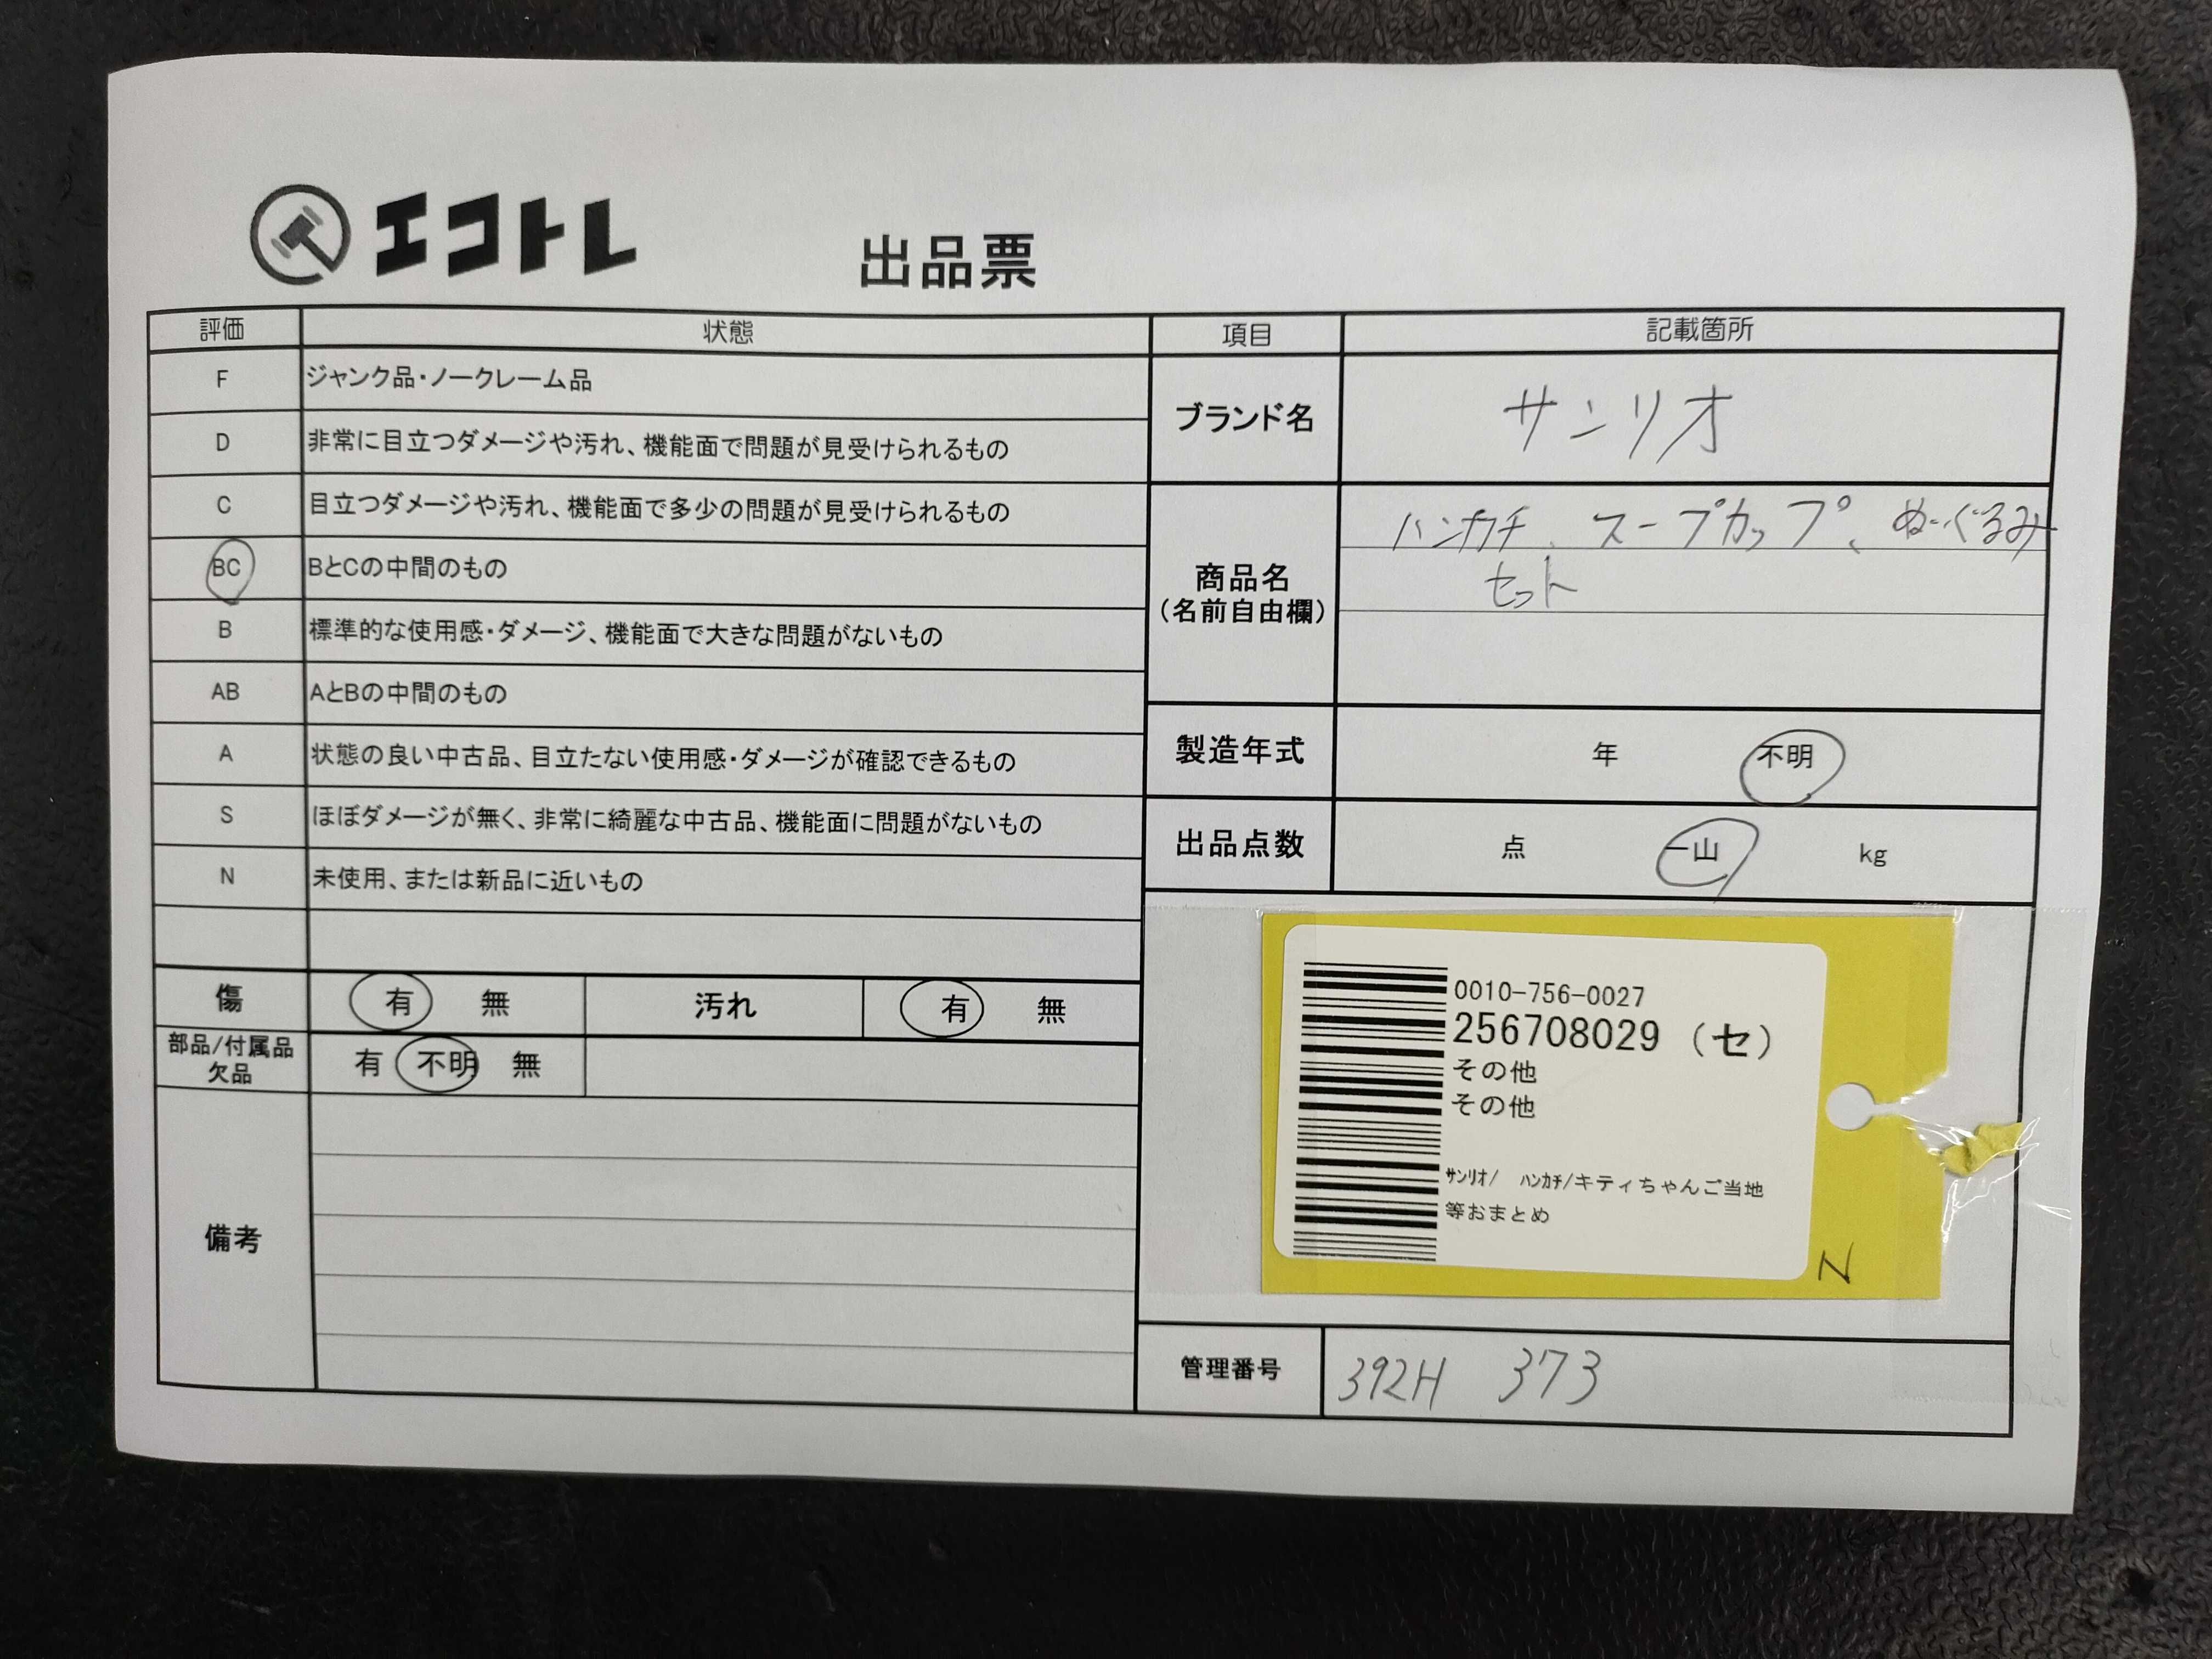 エコトレ
出品票
評価 状態
F ジャンク品・ノークレーム品
D 非常に目立つダメージや汚れ、機能面で問題が見受けられるもの
C 目立つダメージや汚れ、機能面で多少の問題が見受けられるもの
BC BとCの中間のもの
B 標準的な使用感・ダメージ、機能面で大きな問題がないもの
AB AとBの中間のもの
A 状態の良い中古品、目立たない使用感・ダメージが確認できるもの
S ほぼダメージが無く、非常に綺麗な中古品、機能面に問題がないもの
N 未使用、または新品に近いもの
傷 有 無 汚れ 有 無
部品/付属品
欠品
有 不明 無
備考
項目 記載箇所
ブランド名 サンリオ
商品名
(名前自由欄)
ハンカチ、スープカップ、ぬいぐるみ
セット
製造年式 年 不明
出品点数 点 一山 kg
0010-756-0027
256708029 (セ)
その他
その他
ｻﾝﾘｵ/ ﾊﾝｶﾁ/キティちゃんご当地
等おまとめ
N
管理番号 392H 373